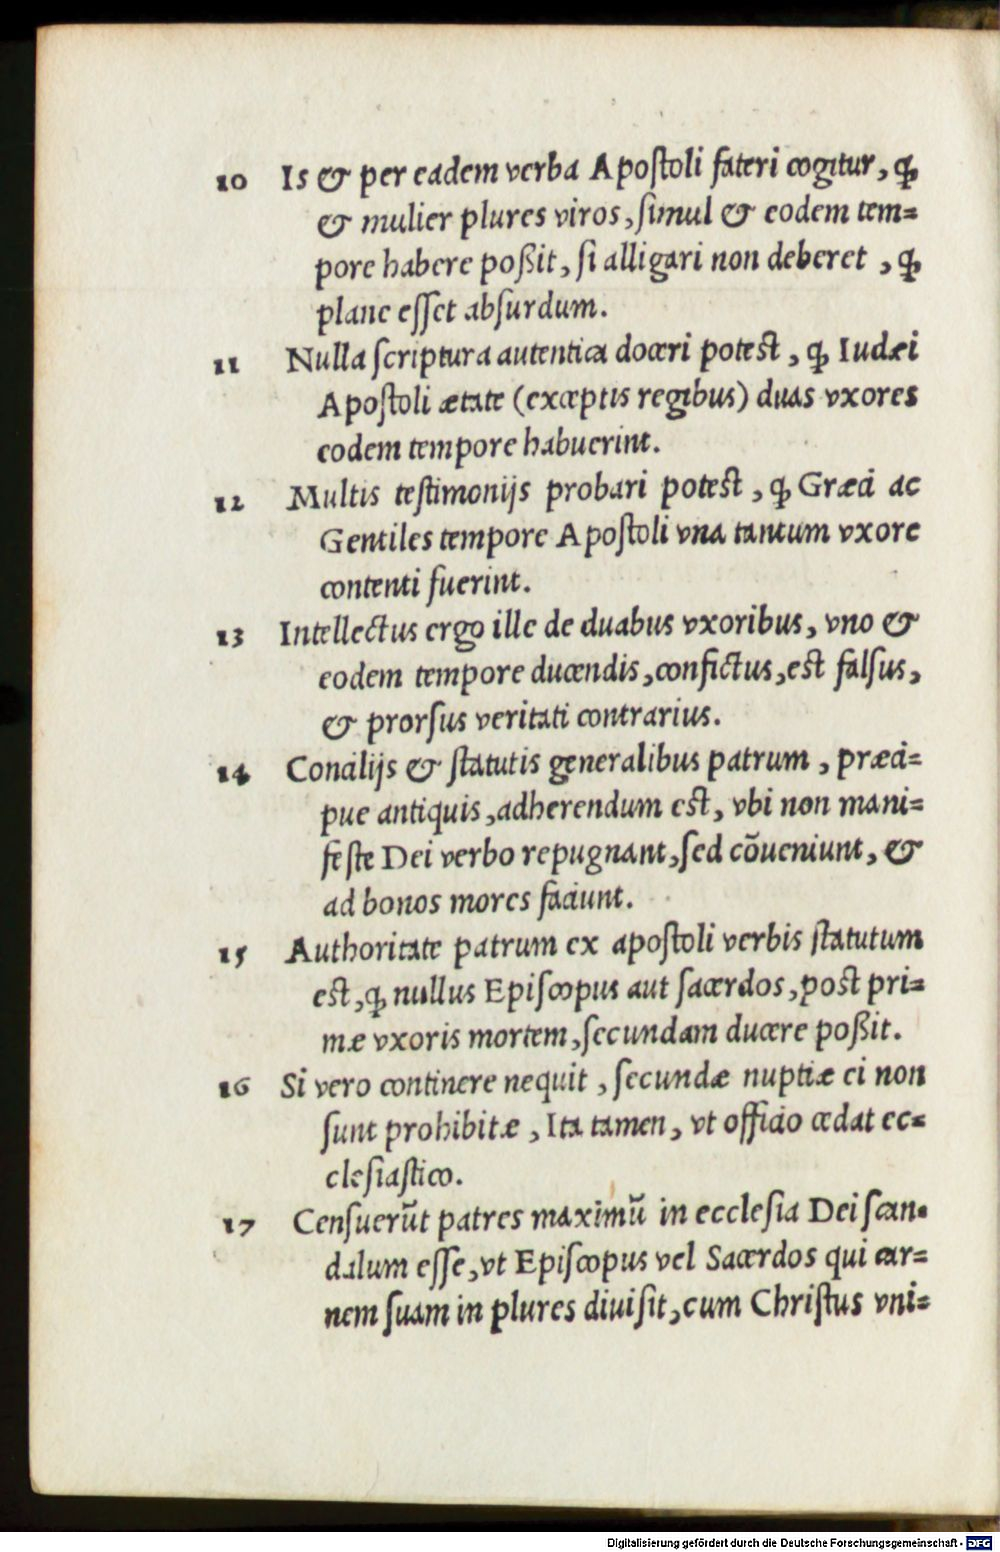 10 Is & per eadem verba Apoſtoli fateri cogitur, ꝙ
& mulier plures viros, ſimul & eodem tem=
pore habere poßit, ſi alligari non deberet, ꝙ
plane eſſet abſurdum.
11 Nulla ſcriptura autentica doceri poteſt, ꝙ Iudæi
Apoſtoli ætate (exceptis regibus) duas vxores
eodem tempore habuerint.
12 Multis teſtimonijs probari poteſt, ꝙ Græci ac
Gentiles tempore Apoſtoli vna tantum vxore
contenti fuerint.
13 Intellectus ergo ille de duabus vxoribus, vno &
eodem tempore ducendis, confictus, eſt falſus,
& prorſus veritati contrarius.
14 Concilijs & ſtatutis generalibus patrum, præci=
pue antiquis, adherendum eſt, vbi non mani=
feſte Dei verbo repugnant, ſed cõueniunt, &
ad bonos mores faciunt.
15 Authoritate patrum ex apoſtoli verbis ſtatutum
eſt, ꝙ nullus Epiſcopus aut ſacerdos, poſt pri=
mæ vxoris mortem, ſecundam ducere poßit.
16 Si vero continere nequit, ſecundæ nuptiæ ei non
ſunt prohibitæ, Ita tamen, vt officio cedat ec=
cleſiaſtico.
17 Cenſuerũt patres maximũ in eccleſia Dei ſcan=
dalum eſſe, vt Epiſcopus vel Sacerdos qui car=
nem ſuam in plures diuiſit, cum Chriſtus vni=
Digitalisierung gefördert durch die Deutsche Forschungsgemeinschaft - DFG